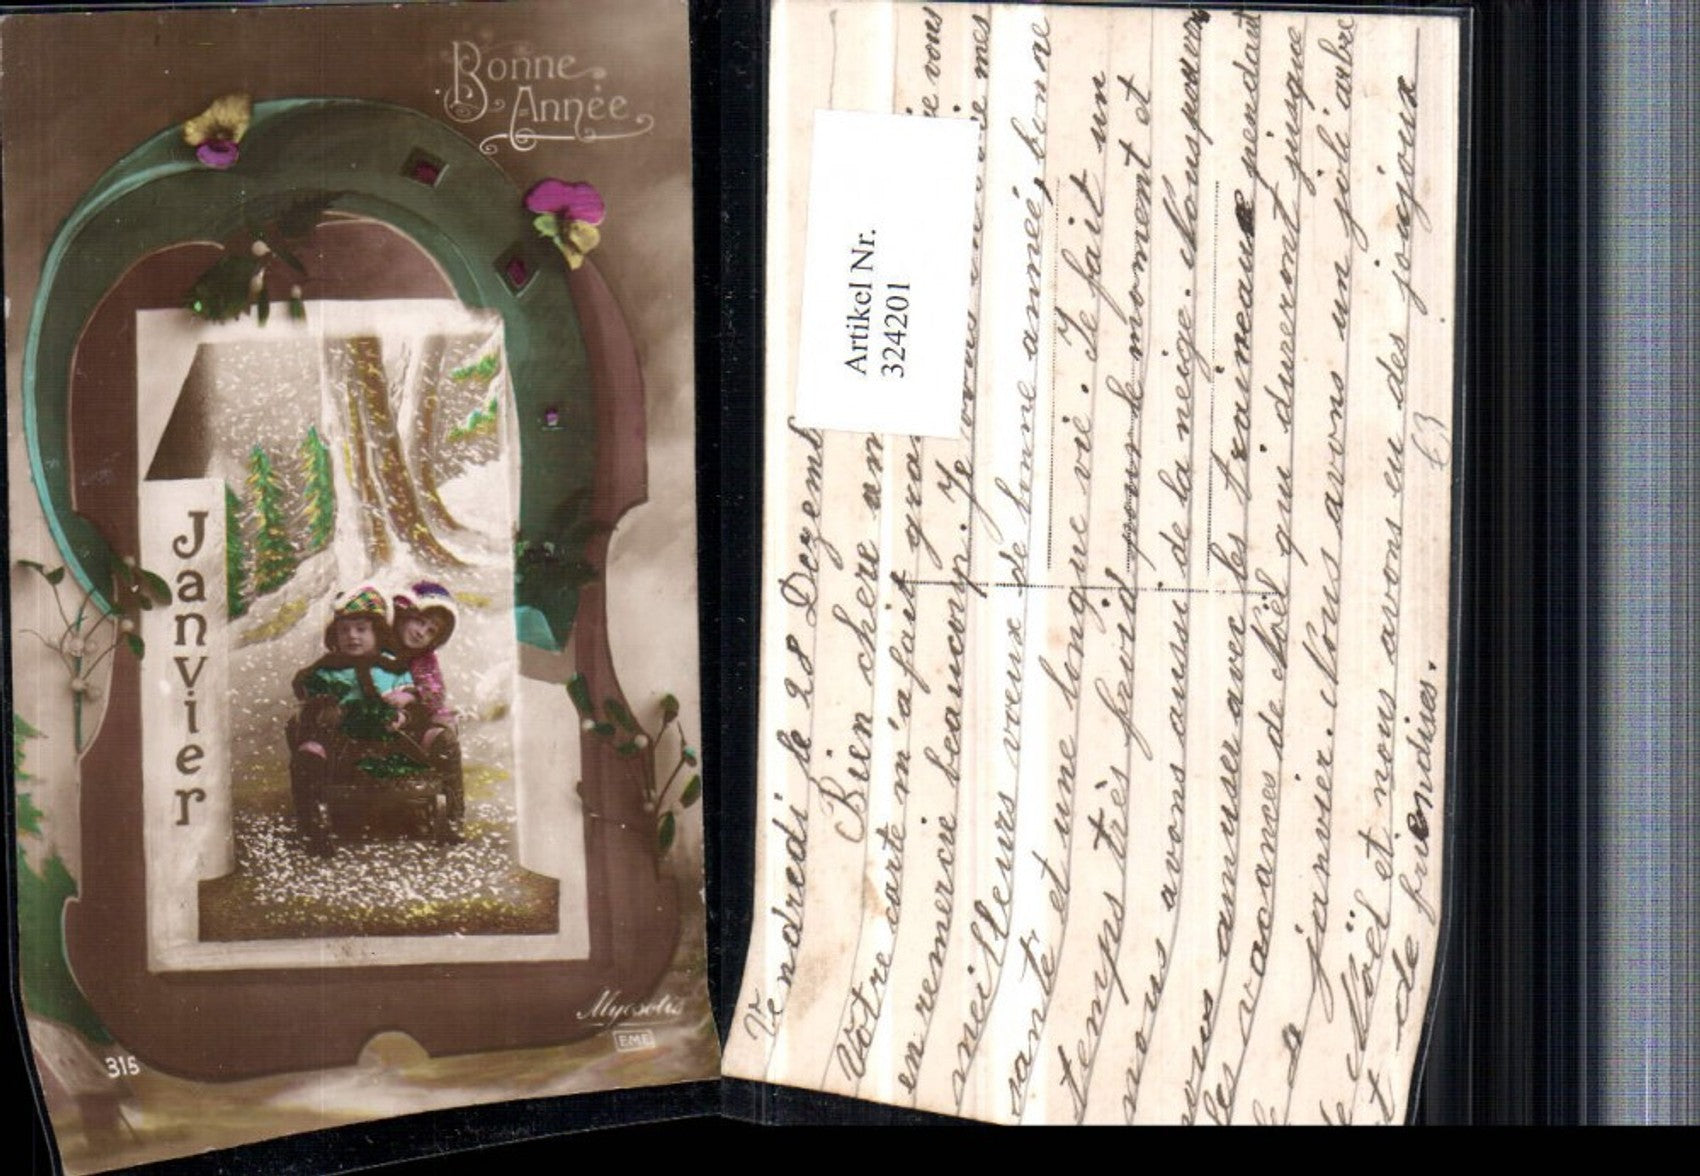 Bonne
Année
Janvier
Myosotis
EME
315
Artikel Nr.
324201
Vendredi le 28 Dezemb
Bien chère
Votre carte m'a fait
en remercie beaucoup. Je vous
meilleurs vœux de bonne année, bonne
santé et une longue vie. Il fait un
temps très froid pour le momment et
nous avons aussi de la neige. Nous pouvons
nous amuser avec les traineaux pendant
les vacances de Noël qui dureront jusque
janvier. Nous avons un joli arbre
de Noël et nous avons eu des joujoux
et de friendises.